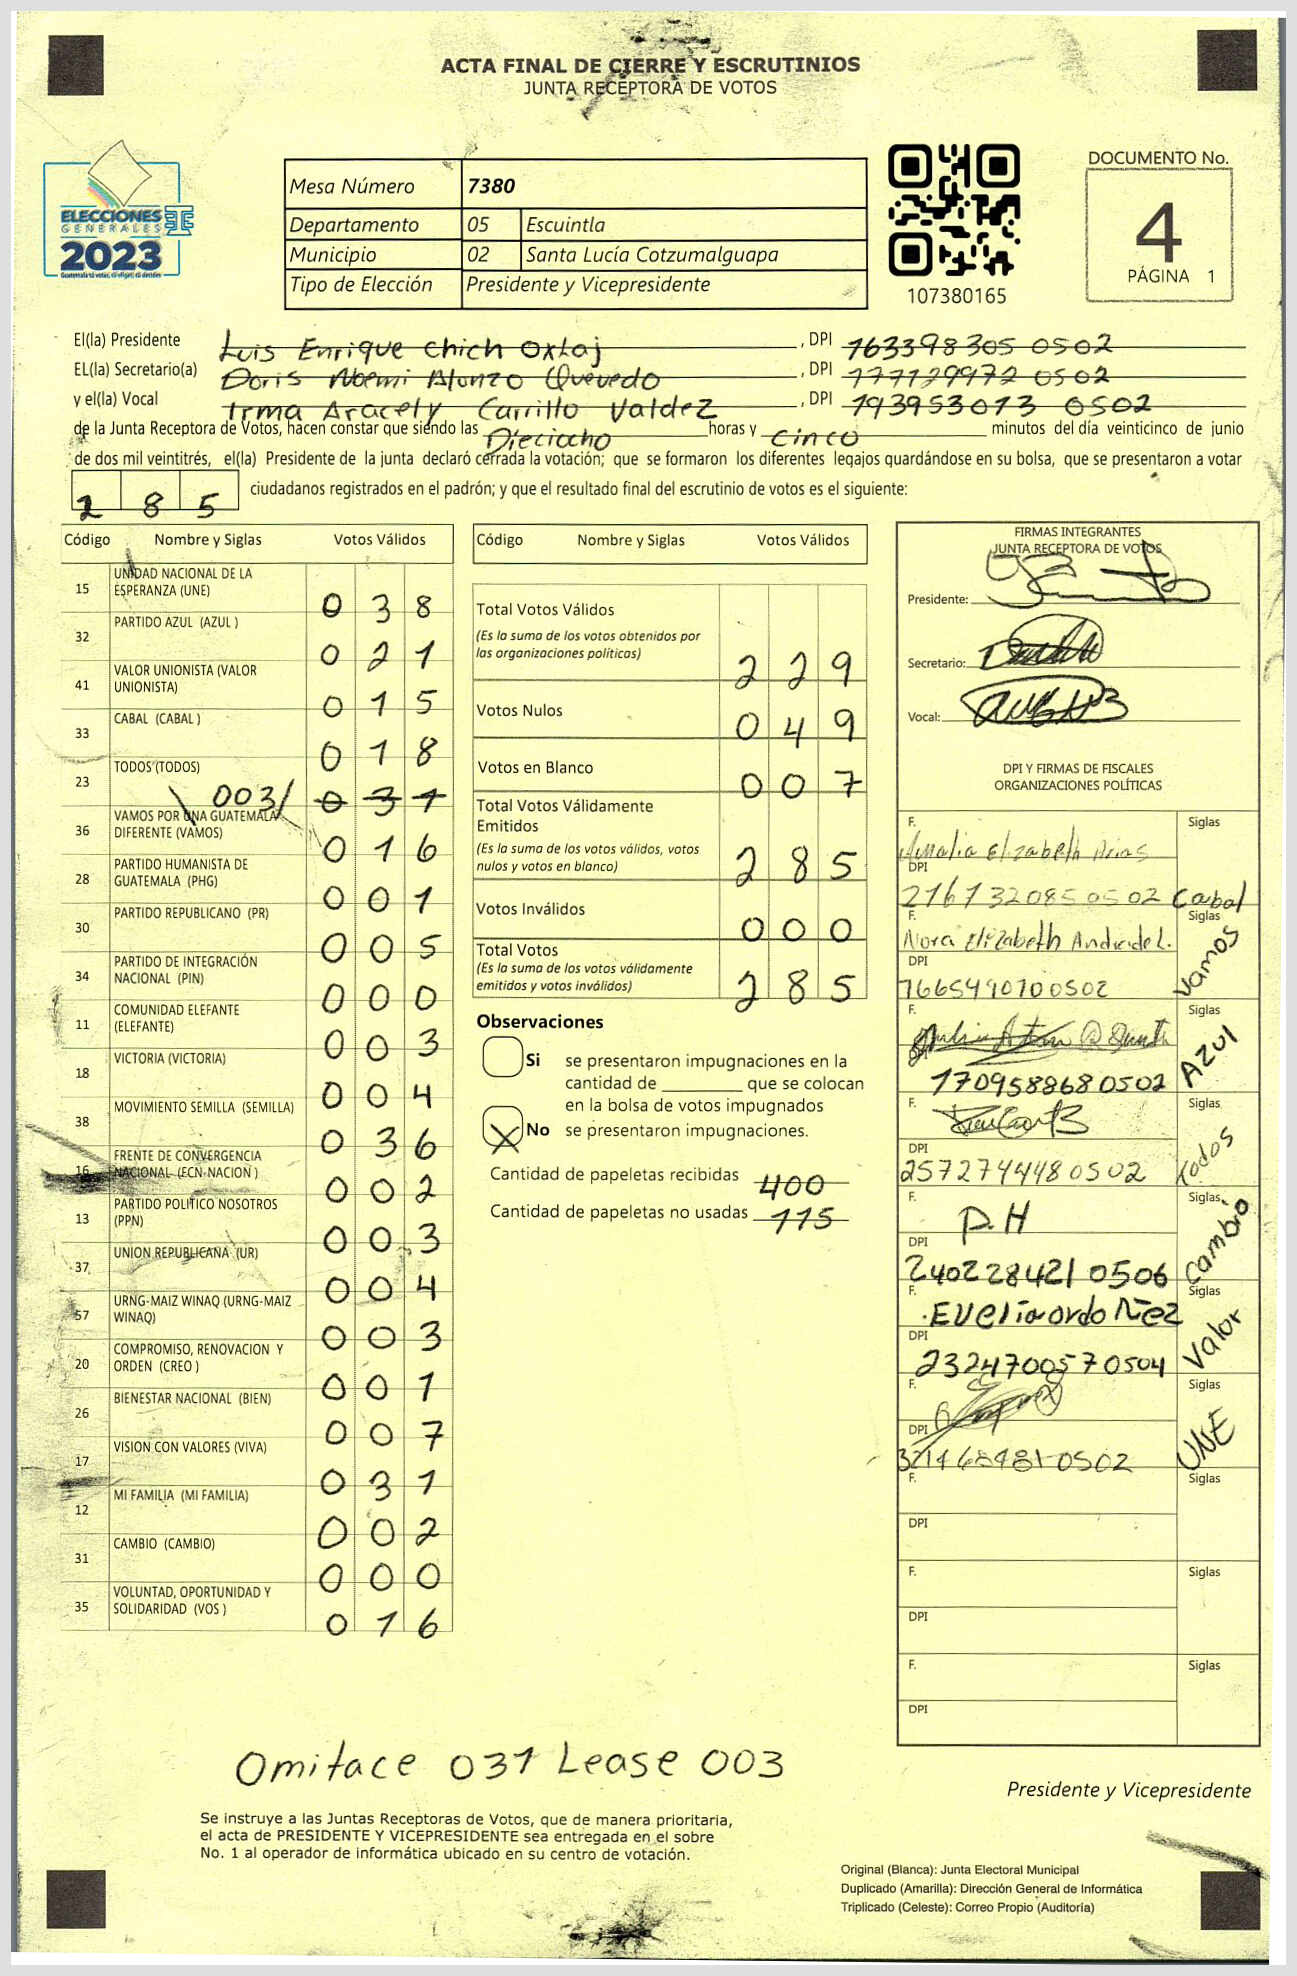 ACTA FINAL DE CIERRE Y ESCRUTINIOS
JUNTA RECEPTORA DE VOTOS
ELECCIONES
GENERALES
2023
Mesa Número 7380
Departamento 05 Escuintla
Municipio 02 Santa Lucía Cotzumalguapa
Tipo de Elección Presidente y Vicepresidente
107380165
DOCUMENTO No.
4
PÁGINA 1
El(la) Presidente Luis Enrique Chich Oxlaj, DPI 163398305 0502
EL(la) Secretario(a) Doris Noemi Alonzo Quevedo, DPI 177129972 0502
y el(la) Vocal Irma Aracely Carrillo Valdez, DPI 193953013 0502
de la Junta Receptora de Votos, hacen constar que siendo las Dieciocho horas y Cinco minutos del día veinticinco de junio
de dos mil veintitrés, el(la) Presidente de la junta declaró cerrada la votación; que se formaron los diferentes legajos guardándose en su bolsa, que se presentaron a votar
285 ciudadanos registrados en el padrón; y que el resultado final del escrutinio de votos es el siguiente:
Código Nombre y Siglas Votos Válidos
15 UNIDAD NACIONAL DE LA ESPERANZA (UNE) 038
32 PARTIDO AZUL (AZUL ) 021
41 VALOR UNIONISTA (VALOR UNIONISTA) 015
33 CABAL (CABAL ) 018
23 TODOS (TODOS) 003 031
36 VAMOS POR UNA GUATEMALA DIFERENTE (VAMOS) 016
28 PARTIDO HUMANISTA DE GUATEMALA (PHG) 001
30 PARTIDO REPUBLICANO (PR) 005
34 PARTIDO DE INTEGRACIÓN NACIONAL (PIN) 000
11 COMUNIDAD ELEFANTE (ELEFANTE) 003
18 VICTORIA (VICTORIA) 004
38 MOVIMIENTO SEMILLA (SEMILLA) 036
16 FRENTE DE CONVERGENCIA NACIONAL (FCN-NACION ) 002
13 PARTIDO POLITICO NOSOTROS (PPN) 003
37 UNION REPUBLICANA (UR) 004
57 URNG-MAIZ WINAQ (URNG-MAIZ WINAQ) 003
20 COMPROMISO, RENOVACION Y ORDEN (CREO ) 001
26 BIENESTAR NACIONAL (BIEN) 007
17 VISION CON VALORES (VIVA) 031
12 MI FAMILIA (MI FAMILIA) 002
31 CAMBIO (CAMBIO) 000
35 VOLUNTAD, OPORTUNIDAD Y SOLIDARIDAD (VOS ) 016
Código Nombre y Siglas Votos Válidos
Total Votos Válidos
(Es la suma de los votos obtenidos por
las organizaciones políticas) 229
Votos Nulos 049
Votos en Blanco 007
Total Votos Válidamente
Emitidos
(Es la suma de los votos válidos, votos
nulos y votos en blanco) 285
Votos Inválidos 000
Total Votos
(Es la suma de los votos válidamente
emitidos y votos inválidos) 285
Observaciones
Si se presentaron impugnaciones en la
cantidad de ________ que se colocan
en la bolsa de votos impugnados
X No se presentaron impugnaciones.
Cantidad de papeletas recibidas 400
Cantidad de papeletas no usadas 115
FIRMAS INTEGRANTES
JUNTA RECEPTORA DE VOTOS
Presidente:
Secretario:
Vocal:
DPI Y FIRMAS DE FISCALES
ORGANIZACIONES POLÍTICAS
F. Amalia Elizabeth Arias Siglas
DPI 216732085 0502 Cabal
F. Nora Elizabeth Andrade L. Siglas
DPI 1665490700502 Vamos
F. Siglas
DPI 170958868 0502 Azul
F. Siglas
DPI 257274448 0502 todos
F. P.H Siglas
DPI 240228421 0506 Cambio
F. Evelia ordoñez Siglas
DPI 232470057 0504 Valor
F. Siglas
DPI 321468481 0502 UNE
F. Siglas
DPI
F. Siglas
DPI
F. Siglas
DPI
Omitace 031 Lease 003
Presidente y Vicepresidente
Se instruye a las Juntas Receptoras de Votos, que de manera prioritaria,
el acta de PRESIDENTE Y VICEPRESIDENTE sea entregada en el sobre
No. 1 al operador de informática ubicado en su centro de votación.
Original (Blanca): Junta Electoral Municipal
Duplicado (Amarilla): Dirección General de Informática
Triplicado (Celeste): Correo Propio (Auditoría)